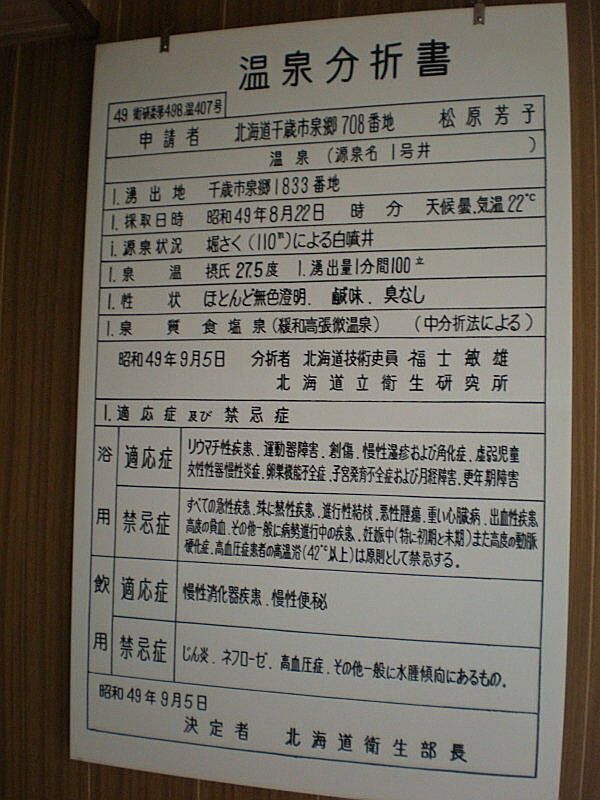 温泉分折書
49 衛研委第498.温407号
申請者 北海道千歳市泉郷708番地 松原芳子
温泉（源泉名 1号井 ）
1.湧出地 千歳市泉郷1833番地
1.採取日時 昭和49年8月22日 時 分 天候曇.気温22℃
1.源泉状況 堀さく（110m）による自噴井
1.泉温 摂氏27.5度 1.湧出量1分間100立
1.性状 ほとんど無色澄明. 鹹味. 臭なし
1.泉質 食塩泉（緩和高張微温泉）（中分折法による）
昭和49年9月5日 分折者 北海道技術吏員 福士敏雄
北海道立衛生研究所
1.適応症及び禁忌症
浴用 適応症 リウマチ性疾患、運動器障害.創傷.慢性湿疹および角化症.虚弱児童
女性性器慢性炎症.卵巣機能不全症.子宮発育不全症および月経障害.更年期障害
禁忌症 すべての急性疾患.殊に熱性疾患.進行性結核.悪性腫瘍.重い心臓病.出血性疾患
高度の貧血.その他一般に病勢進行中の疾患.妊娠中(特に初期と末期)また高度の動脈
硬化症.高血圧症患者の高温浴(42℃以上)は原則として禁忌する.
飲用 適応症 慢性消化器疾患.慢性便秘
禁忌症 じん炎.ネフローゼ.高血圧症.その他一般に水腫傾向にあるもの.
昭和49年9月5日
決定者 北海道衛生部長